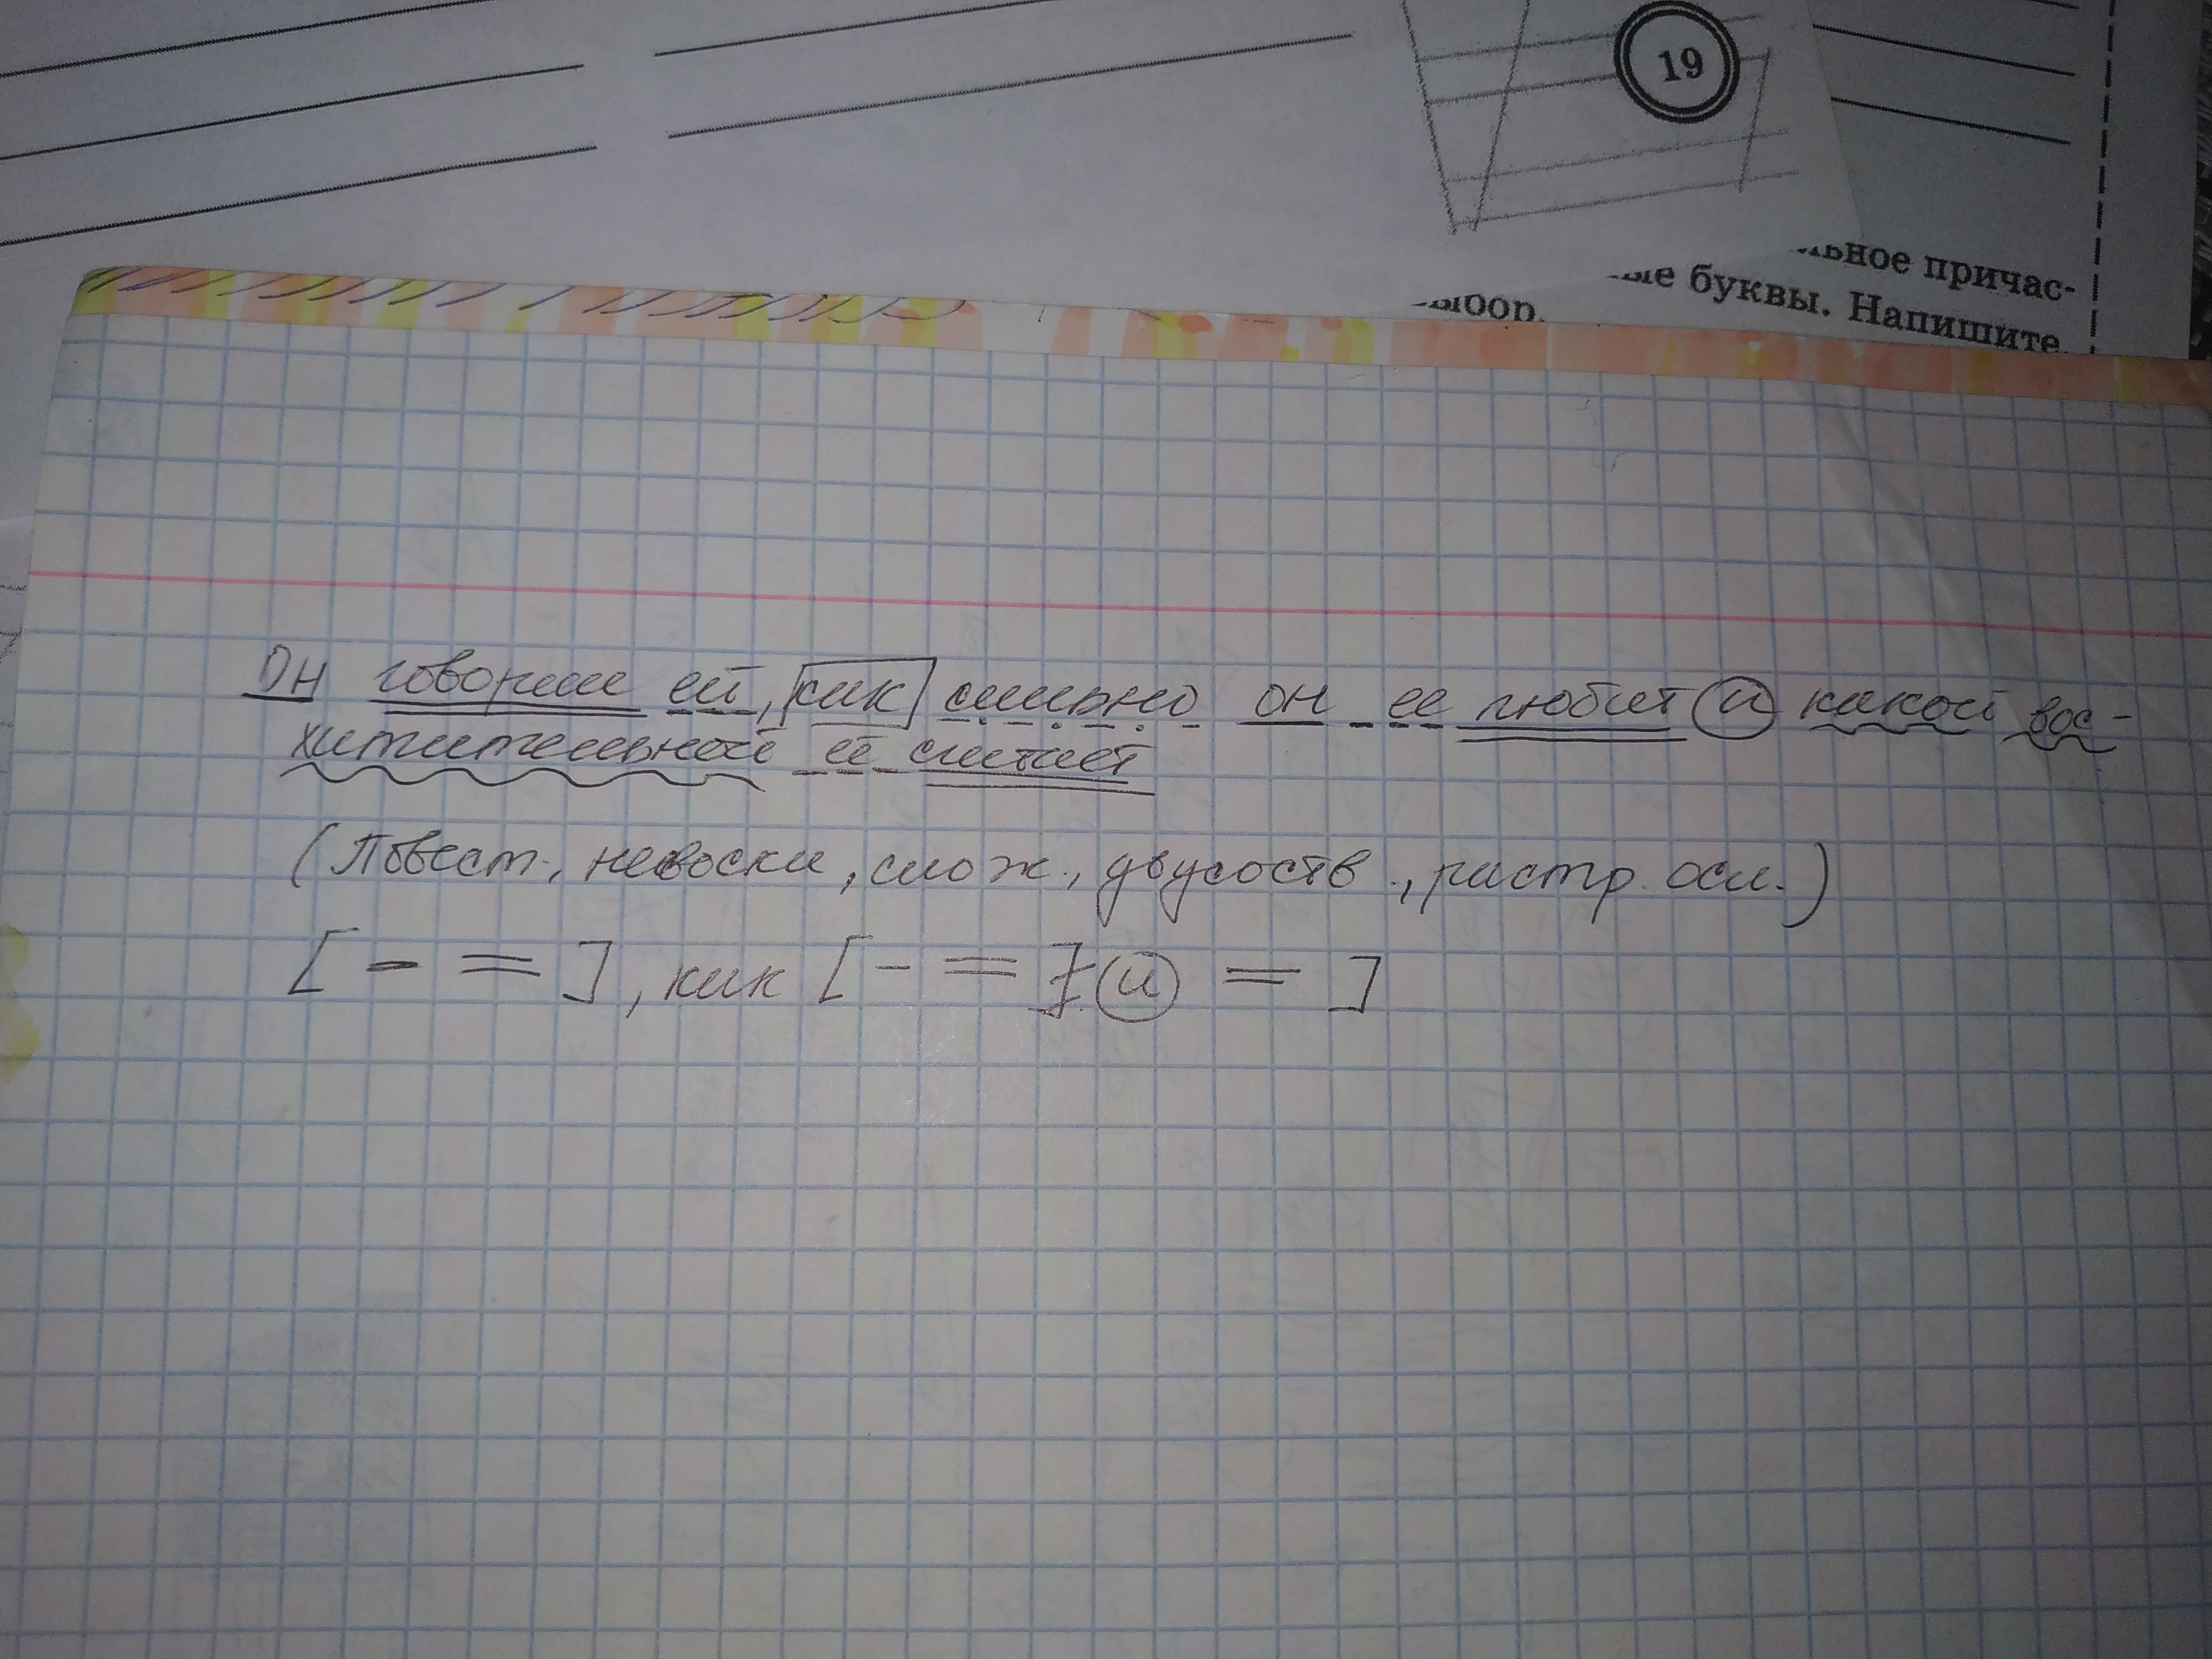 19
льное причас-
ые буквы. Напишите
ыбор.
Он говорит ей, как сильно он ее любит и какой вос-
хитительной её считает
(Повест., невоскл, слож., двусоств., распр. осл.)
[ - = ], как [ - = ] и = ]